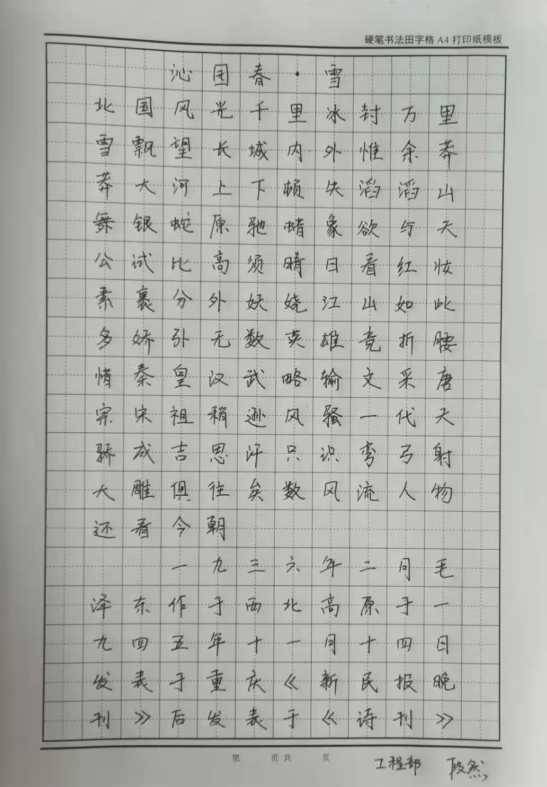 硬笔书法田字格A4打印纸模板
沁园春·雪
北国风光千里冰封万里
雪飘望长城内外惟余莽
莽大河上下顿失滔滔山
舞银蛇原驰蜡象欲与天
公试比高须晴日看红妆
素裹分外妖娆江山如此
多娇引无数英雄竞折腰
惜秦皇汉武略输文采唐
宗宋祖稍逊风骚一代天
骄成吉思汗只识弯弓射
大雕俱往矣数风流人物
还看今朝
一九三六年二月毛
泽东作于西北高原于一
九四五年十一月十四日
发表于重庆《新民报晚
刊》后发表于《诗刊》
第 页共 页
工程部 段然